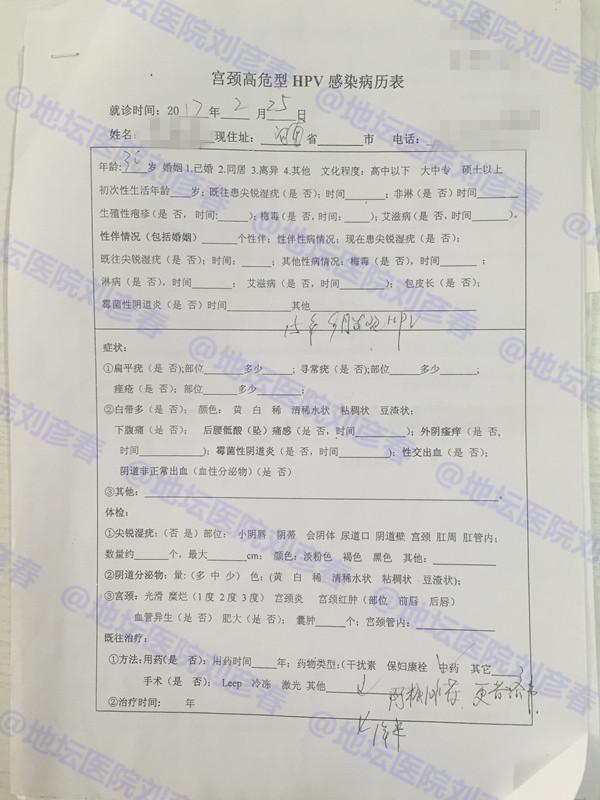 宫颈高危型 HPV 感染病历表
就诊时间：2017年2月25日
姓名：现住址：河南省____市 电话：
年龄:3 岁 婚姻 1.已婚 2.同居 3.离异 4.其他 文化程度：高中以下 大中专 硕士以上
初次性生活年龄___岁；既往患尖锐湿疣（是 否）；时间______；非淋（是 否）时间______
生殖性疱疹（是 否，时间:_____）；梅毒（是 否，时间：____）；艾滋病（是 否，时间______）。
性伴情况（包括婚姻）______个性伴；性伴性病情况：现在患尖锐湿疣（是 否）；
既往尖锐湿疣（是 否）；时间：_____；其他性病情况：梅毒（是 否），时间______；
淋病（是 否），时间______； 艾滋病（是 否，时间______）； 包皮长（是 否）；
霉菌性阴道炎（是 否）时间__________其他__________
15年 月 HPV
症状：
①扁平疣（是 否）;部位______多少____；寻常疣（是 否）;部位_____多少_____；
痤疮（是 否）；部位_____多少_____；
②白带多（是 否）； 颜色： 黄 白 稀 清稀水状 粘稠状 豆渣状；
下腹痛（是 否）； 后腰骶酸（坠）痛感（是 否，时间______）；外阴瘙痒（是 否，
时间________）；霉菌性阴道炎（是 否，时间______）；性交出血（是 否）；
阴道非正常出血（血性分泌物）（是 否）
③其他：____________________。
体检：
①尖锐湿疣：（否 是）部位： 小阴唇 阴蒂 会阴体 尿道口 阴道壁 宫颈 肛周 肛管内；
数量约_____个，最大______cm； 颜色：淡粉色 褐色 黑色 其他：________
②阴道分泌物：量:（多 中 少） 色：(黄 白 稀 清稀水状 粘稠状 豆渣状)；
③宫颈：光滑 糜烂（1 度 2 度 3 度） 宫颈炎 宫颈红肿（部位 前唇 后唇）
血管异生（是 否） 肥大（是 否）； 囊肿_____个；宫颈管内:________
既往治疗：
①方法：用药(是 否)：用药时间____年；药物类型:（干扰素 保妇康栓 中药 其它____）
手术（是 否）： Leep 冷冻 激光 其他
②治疗时间： 年
@地坛医院刘彦春